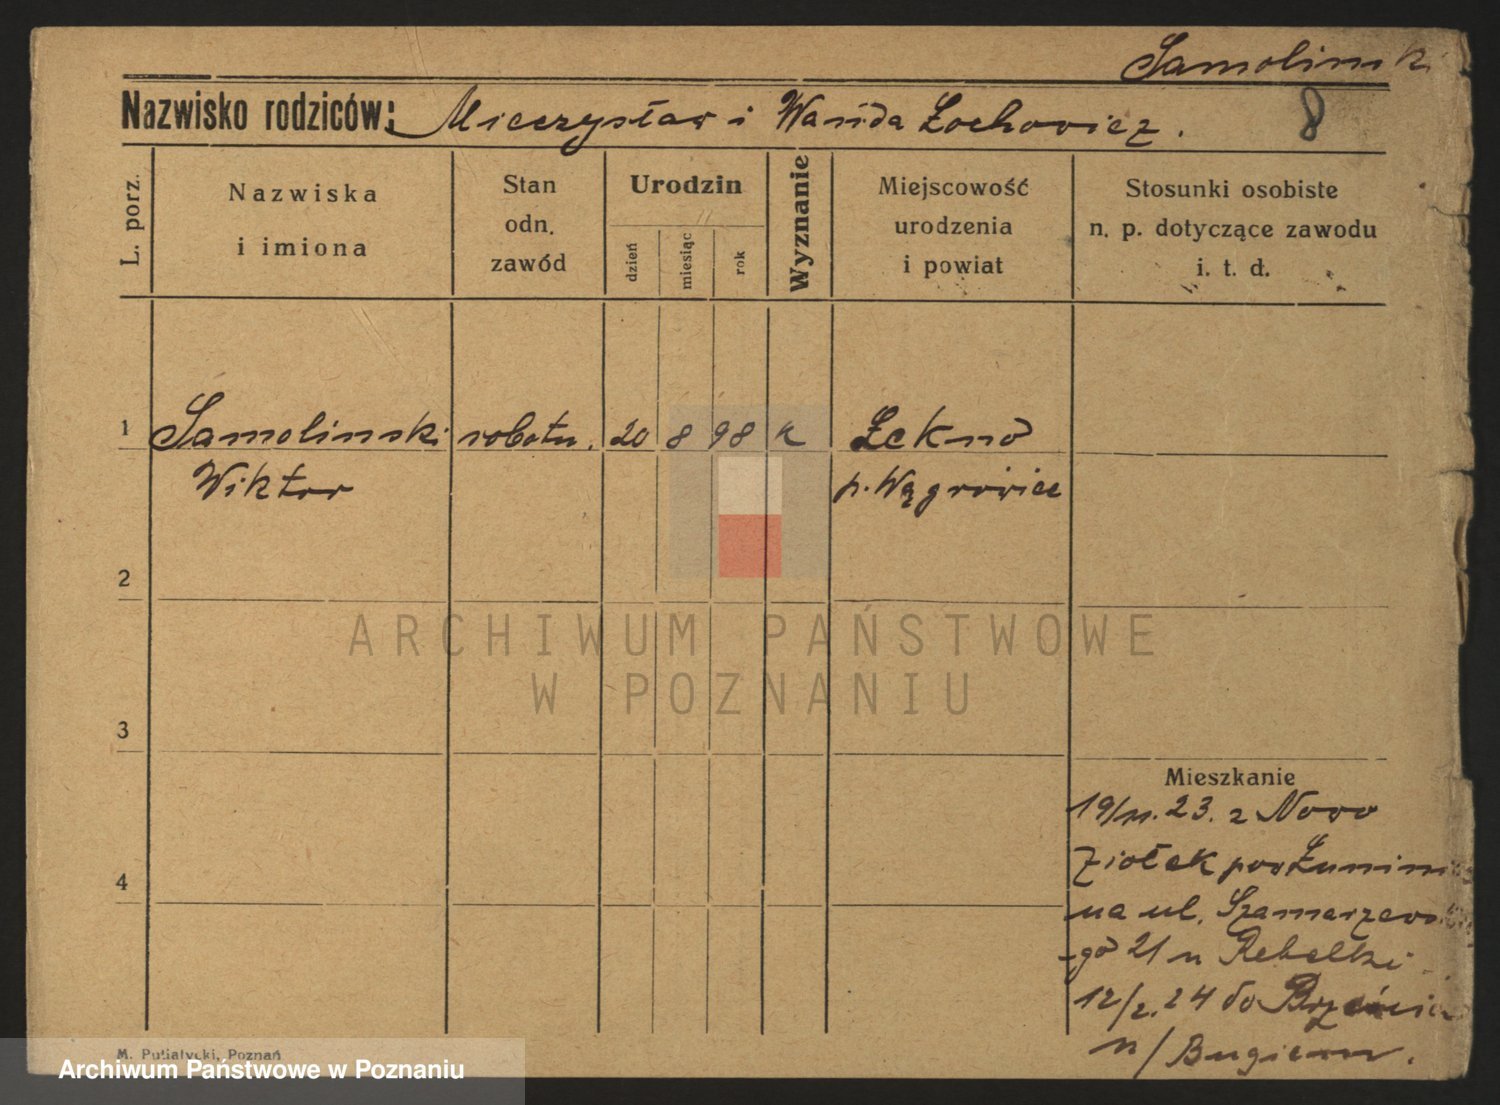 Samolinski
Nazwisko rodziców: Mieczysław i Wanda Żochowicz.
8
L. porz.
Nazwiska
i imiona
Stan
odn.
zawód
Urodzin
dzień
miesiąc
rok
Wyznanie
Miejscowość
urodzenia
i powiat
Stosunki osobiste
n. p. dotyczące zawodu
i. t. d.
1 Samolinski robotn. 20 8 98 k Łekno
Wiktor p. Wągrowiec
2
ARCHIWUM PAŃSTWOWE
W POZNANIU
3
Mieszkanie
19/11. 23. z Nowo
Ziołek pow
4
na ul. Szamarzews
-go 21 u Rebelki
12/2. 24 do Brześcia
n/Bugiem.
M. Putiatycki, Poznań
Archiwum Państwowe w Poznaniu